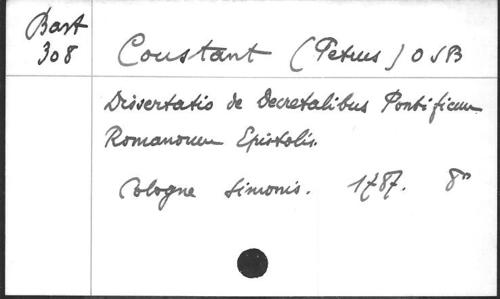 Bart
308
Coustant (Petrus) OSB
Dissertatio de Decretalibus Pontificum
Romanorum Epistolis.
Cologne Simonis. 1787. 8°